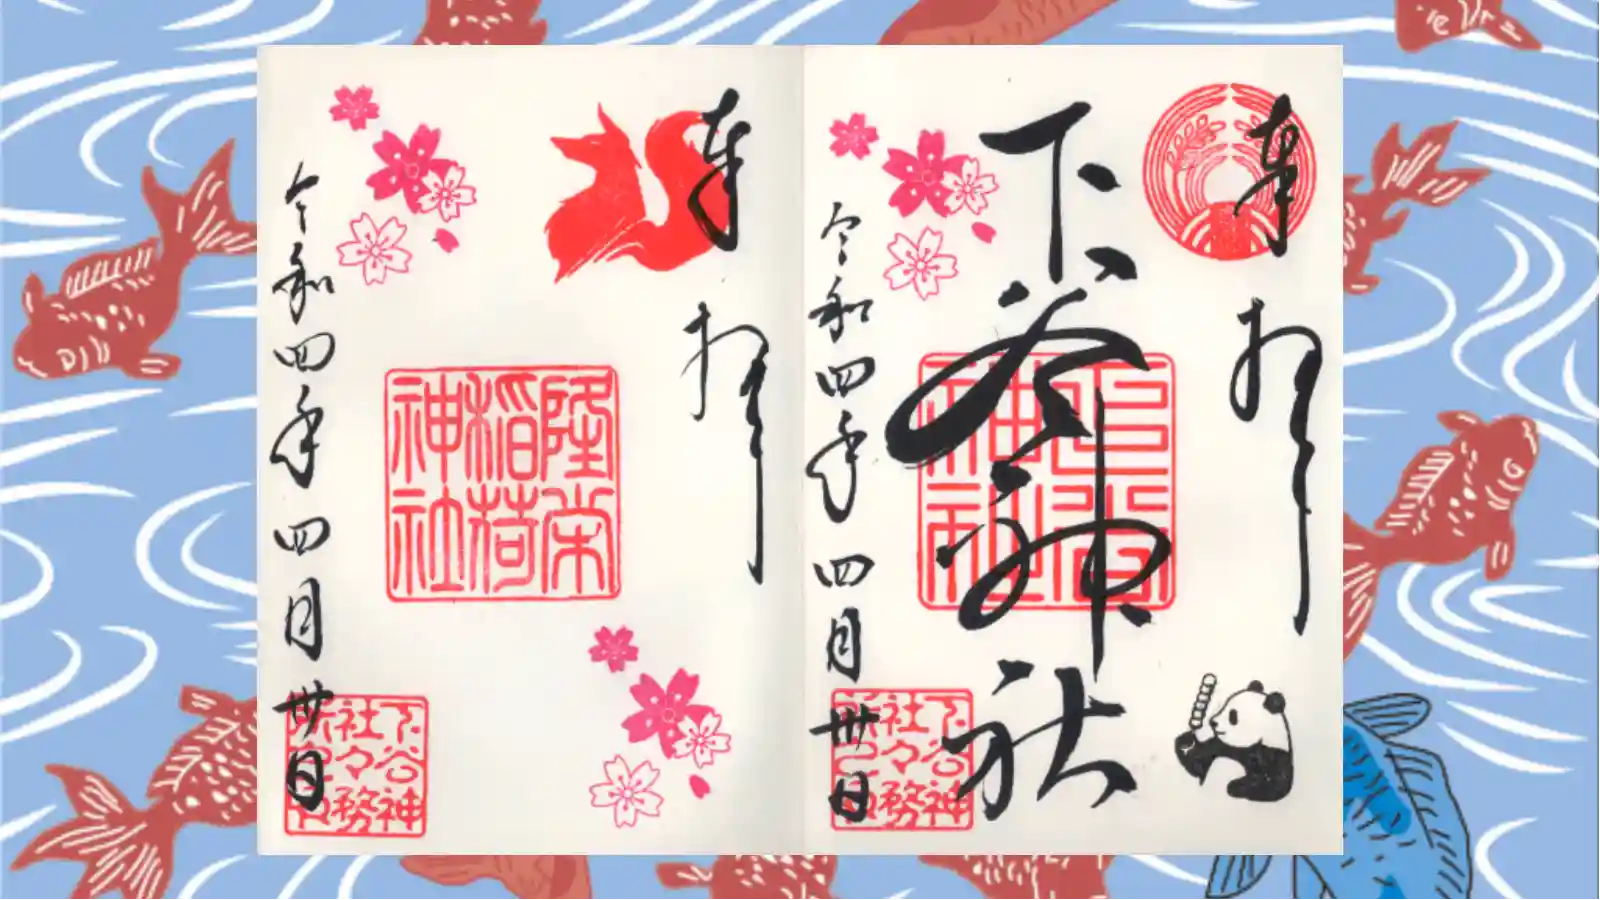 奉拝
下谷神社
下谷神社
令和四年四月卅日
下谷神
社々務
奉拝
隆栄稲荷神社
令和四年四月卅日
下谷神
社々務